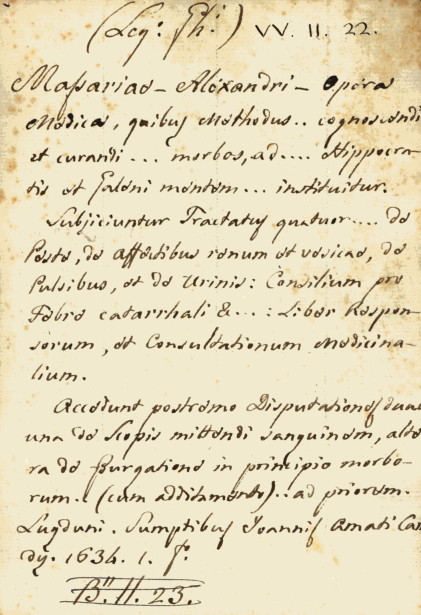 (Leg: Ph:) VV. II. 22.
Massariae - Alexandri - Opera
Medica, quibus Methodus.. cognoscendi
et curandi ... morbos, ad .... Hippocra-
tis et Galeni mentem ... instituitur.
Subjiciuntur Tractatus quatuor .... de
Peste, de affectibus renum et vesicae, de
Pulsibus, et de Urinis: Consilium pro
Febre catarrhali &... : Liber Respon-
sorum, et Consultationum Medicina-
lium.
Accedunt postremo Disputationes duae
una de Scopis mittendi sanguinem, alte-
ra de Purgatione in principio morbo-
rum.. (cum additamento).. ad priorem.
Lugduni. Sumptibus Joannis Amati Can-
dy. 1634. 1. f.
B. II. 23.